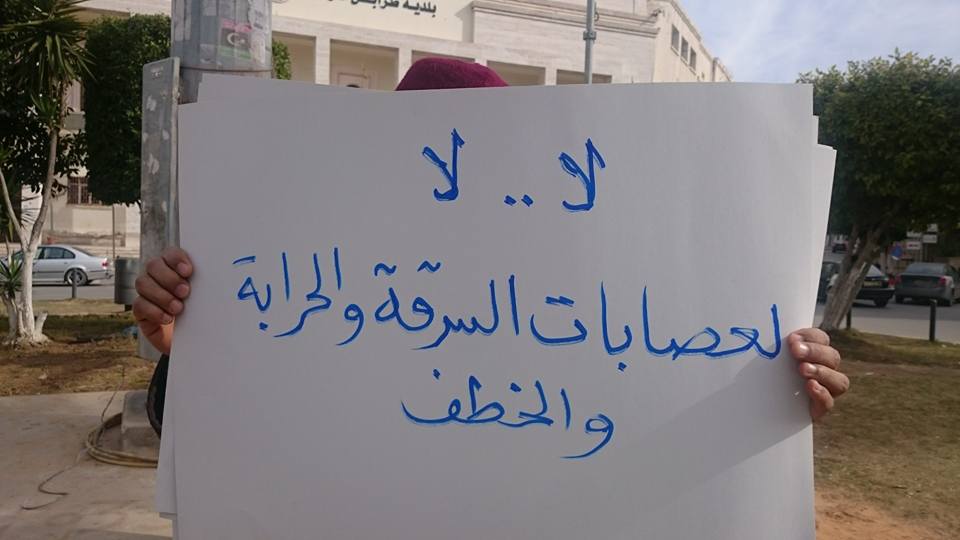 بلدية طرابس
لا .. لا
لعصابات السرقة والحرابة
والخطف